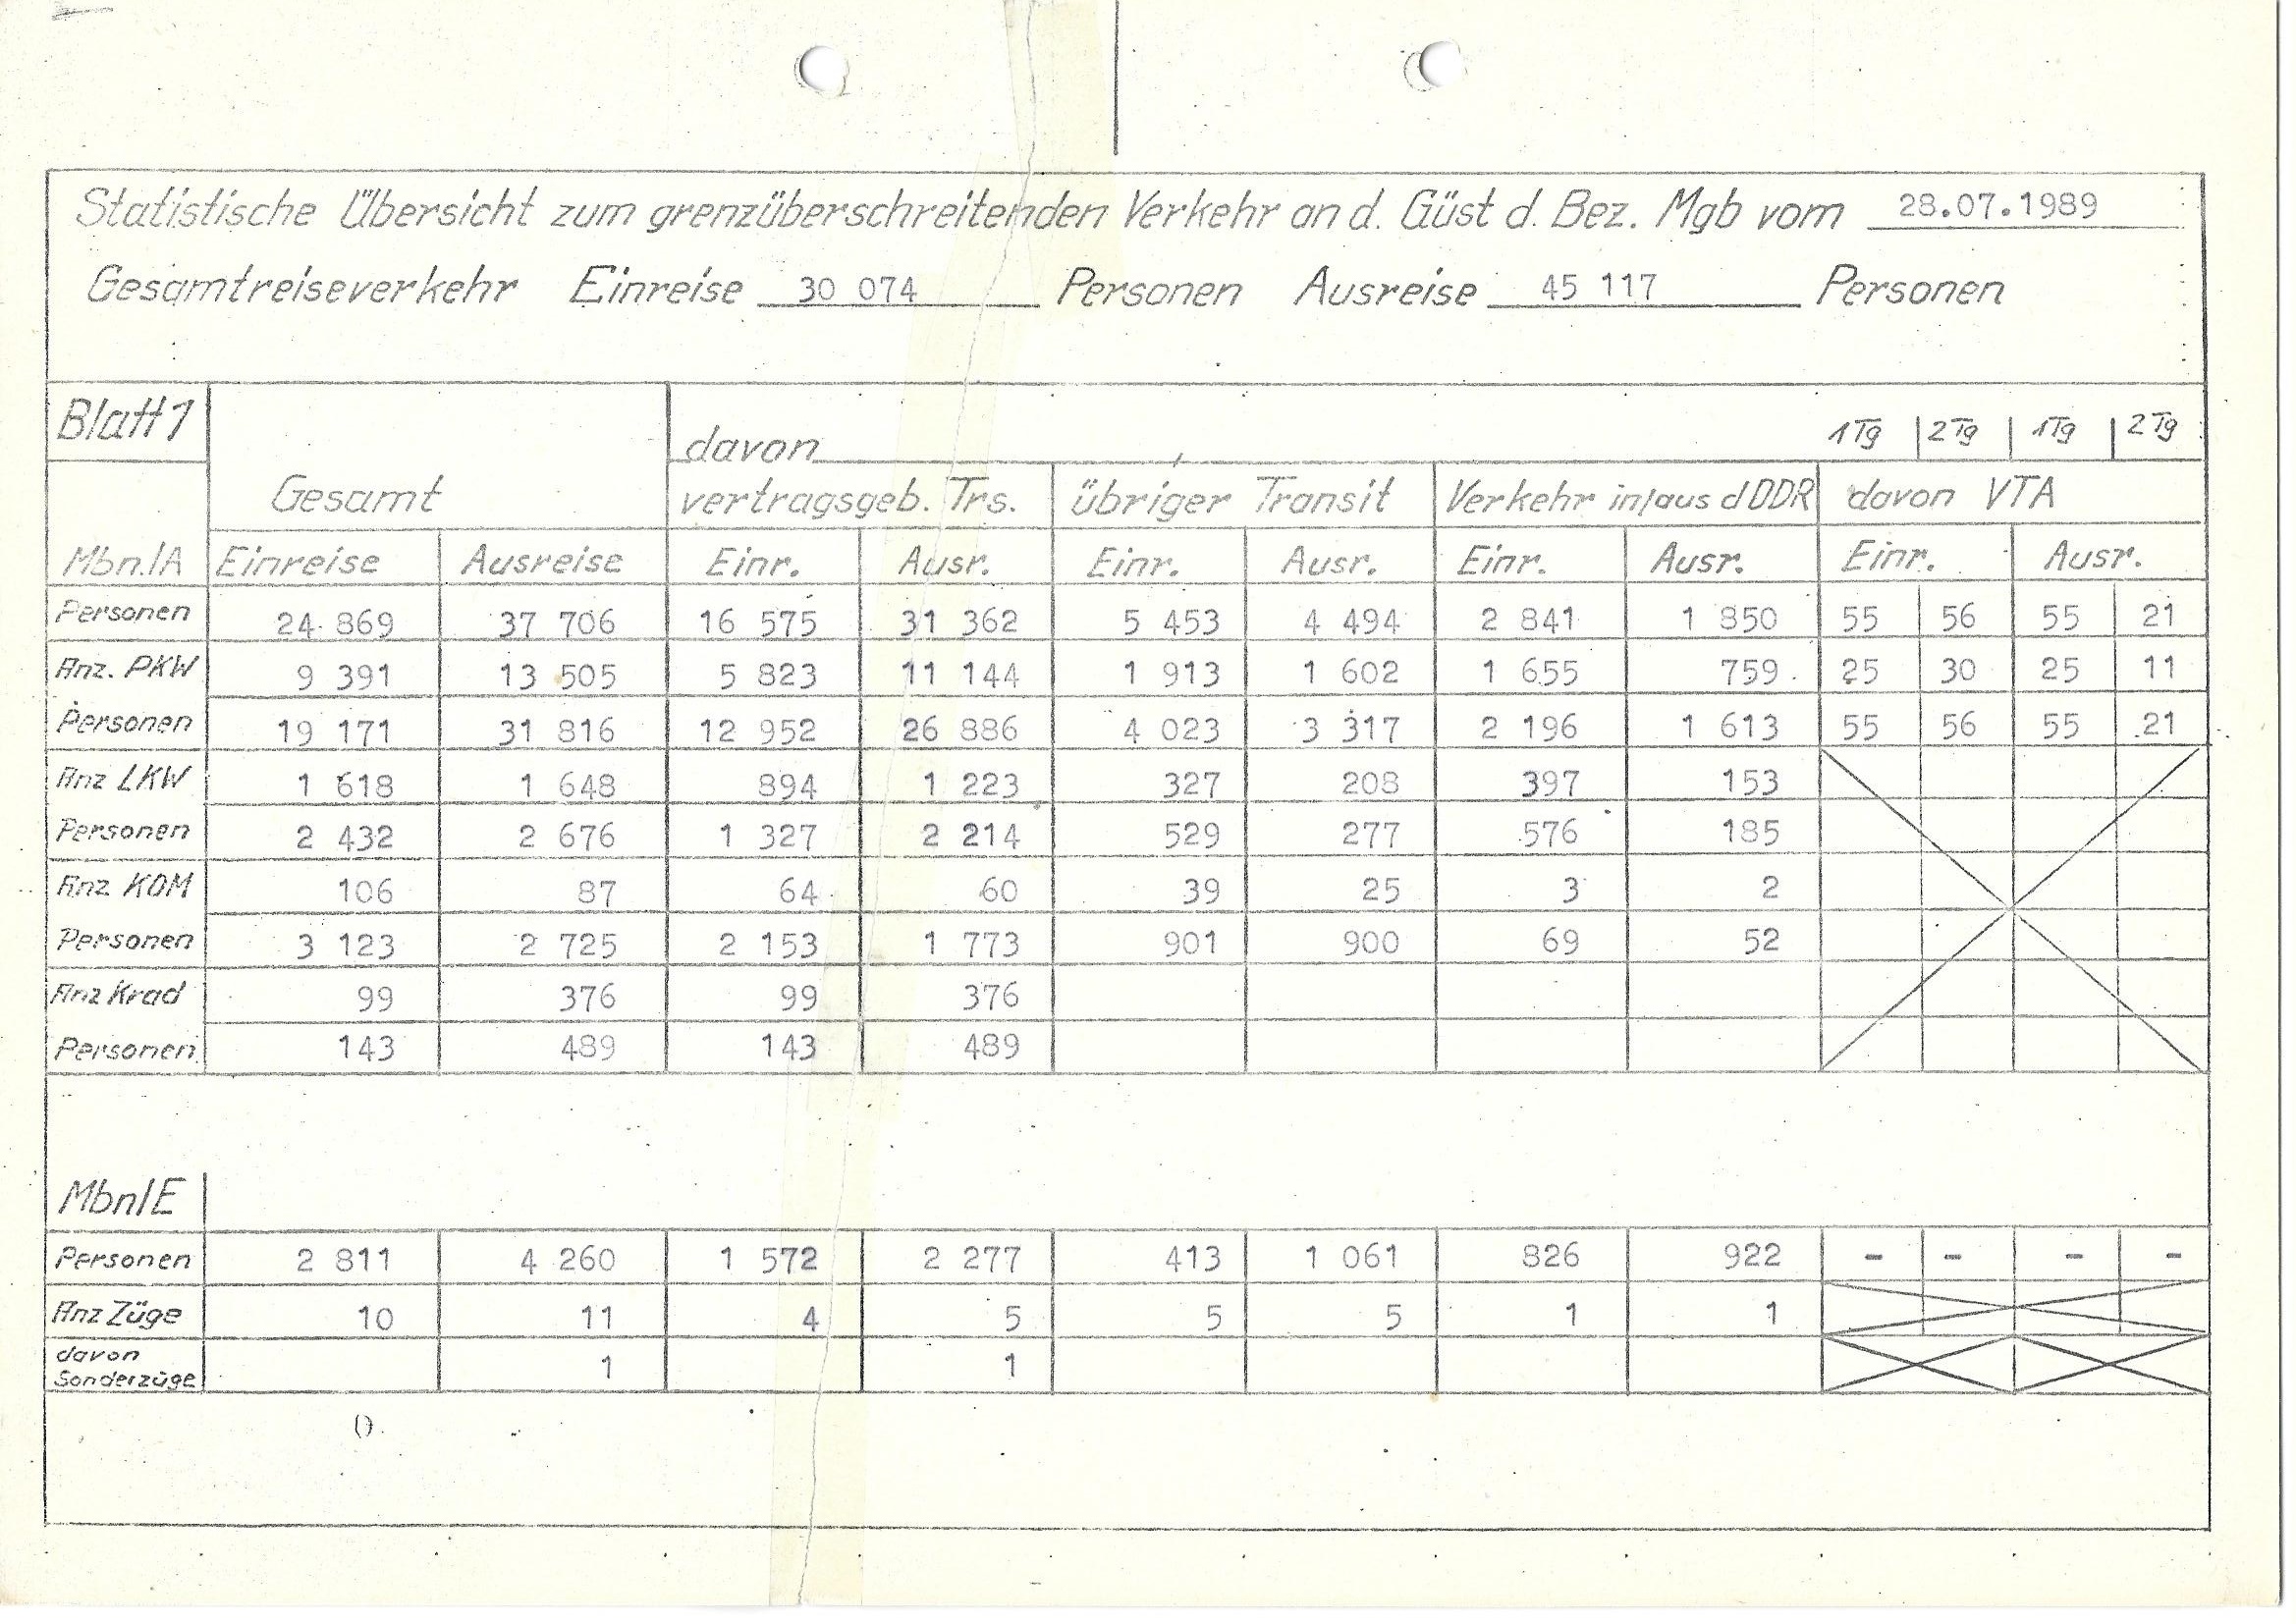 Statistische Übersicht zum grenzüberschreitenden Verkehr an d. Güst d. Bez. Mgb vom 28.07.1989
Gesamtreiseverkehr Einreise 30 074 Personen Ausreise 45 117 Personen
Blatt 1 davon 1Tg 2Tg 1Tg 2Tg
Gesamt vertragsgeb. Trs. übriger Transit Verkehr in/aus d DDR davon VTA
Mbn./A Einreise Ausreise Einr. Ausr. Einr. Ausr. Einr. Ausr. Einr. Ausr.
Personen 24 869 37 706 16 575 31 362 5 453 4 494 2 841 1 850 55 56 55 21
Anz. PKW 9 391 13 505 5 823 11 144 1 913 1 602 1 655 759 25 30 25 11
Personen 19 171 31 816 12 952 26 886 4 023 3 317 2 196 1 613 55 56 55 21
Anz LKW 1 618 1 648 894 1 223 327 208 397 153
Personen 2 432 2 676 1 327 2 214 529 277 576 185
Anz KOM 106 87 64 60 39 25 3 2
Personen 3 123 2 725 2 153 1 773 901 900 69 52
Anz Krad 99 376 99 376
Personen 143 489 143 489
Mbn/E
Personen 2 811 4 260 1 572 2 277 413 1 061 826 922 - - - -
Anz Züge 10 11 4 5 5 5 1 1
davon
Sonderzüge 1 1